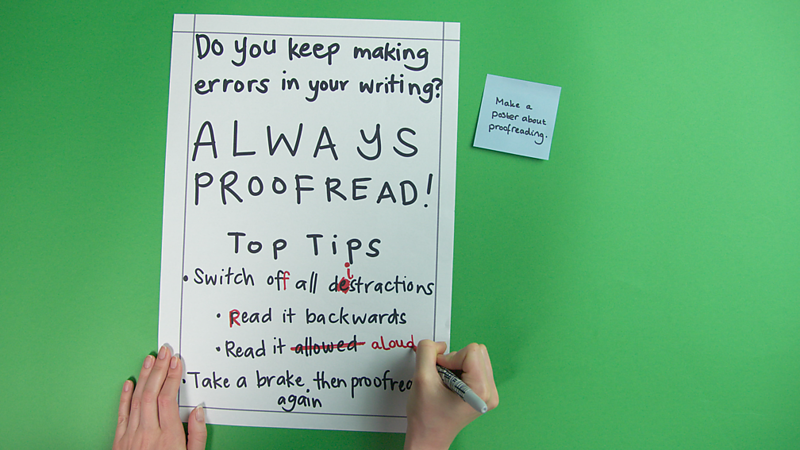 Do you keep making
errors in your writing?
ALWAYS
PROOFREAD!
Top Tips
• Switch off all distractions
• Read it backwards
• Read it allowed aloud
• Take a brake, then proofrea
again
Make a
poster about
proofreading.